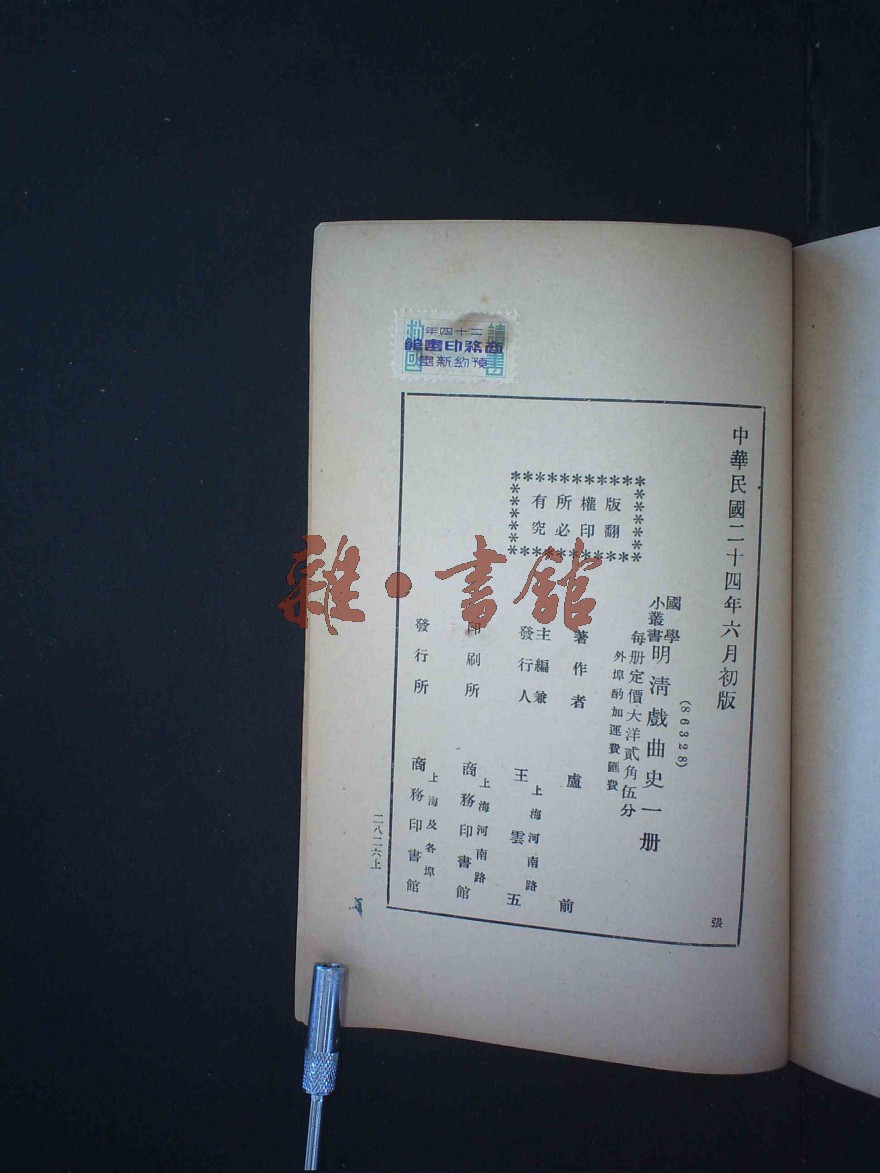 二十四年
商務印書館
預約新書
讀書
救國
中華民國二十四年六月初版
(86328)
國學小叢書 明清戲曲史一册
每册定價大洋貳角伍分
外埠酌加運費匯費
版權所有
翻印必究
著作者 盧前
主編兼發行人 王雲五
上海河南路
印刷所 商務印書館
上海河南路
發行所 商務印書館
上海及各埠
二八二六上
張
雜·書館